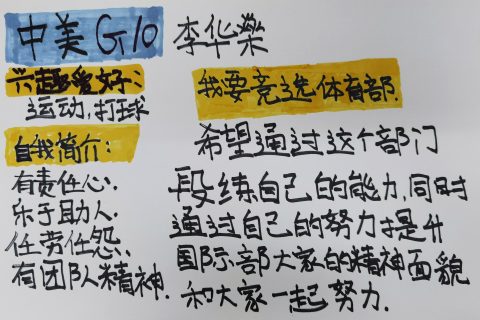 中美G10 李华荣
兴趣爱好:
运动,打球
自我简介:
有责任心.
乐于助人.
任劳任怨.
有团队精神.
我要竞选体育部.
希望通过这个部门
段练自己的能力,同时
通过自己的努力提升
国际部大家的精神面貌
和大家一起努力.